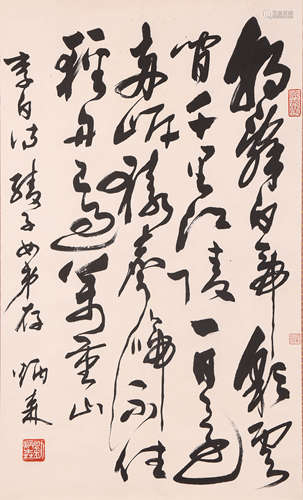 朝辞白帝彩雲
間千里江陵一日還
两岸猿聲啼不住
輕舟已過萬重山
李白诗 绫子女弟存 炳森